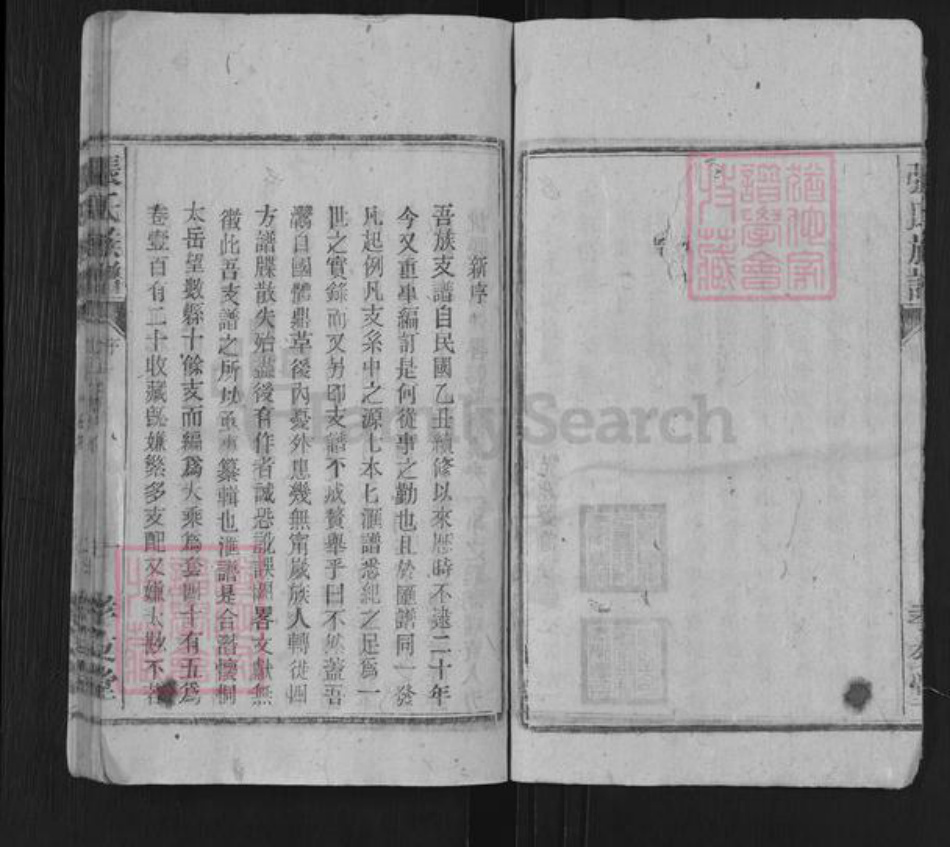 張氏族譜
孝友堂
猶他家譜學會收藏
新序
吾族支譜自民國乙丑續修以來歷時不遠二十年
今又重事編訂是何從事之勤也且於匯譜同一發
凡起例凡支系中之源匕本匕滙譜悉紀之足爲一
世之實錄而又另印支譜不成贅舉乎曰不然蓋吾
灣自國體鼎革後內憂外患幾無甯歲族人轉徙四
方譜牒散失殆盡後有作者誠恐訛誤闕畧文獻無
徵此吾支譜之所以亟事纂輯也滙譜是合潛懷桐
太岳望數縣十餘支而編爲大乘爲套四十有五爲
卷壹百有二十收藏旣嫌繁多支配又嫌太尠不若
張氏族譜
序
孝友堂
猶他家譜學會收藏
FamilySearch